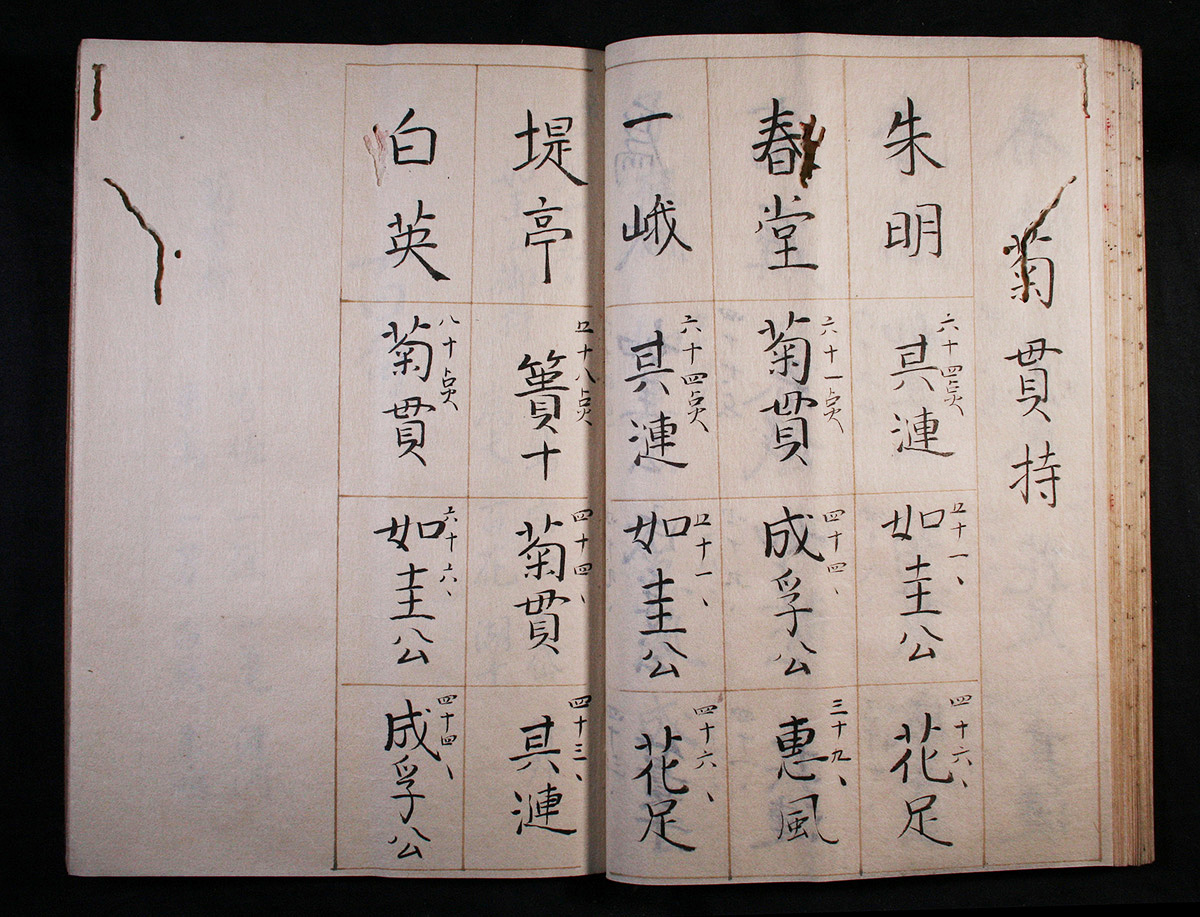 菊貫持
朱明
六十四点
其漣
五十一、
如圭公
四十六、
花足
春堂
六十一点
菊貫
四十四、
成孚公
三十九、
恵風
一峨
六十四点
其漣
五十一、
如圭公
四十六、
花足
堤亭
五十八点
簣十
四十四、
菊貫
四十三、
其漣
白英
八十点
菊貫
六十六、
如圭公
四十四、
成孚公